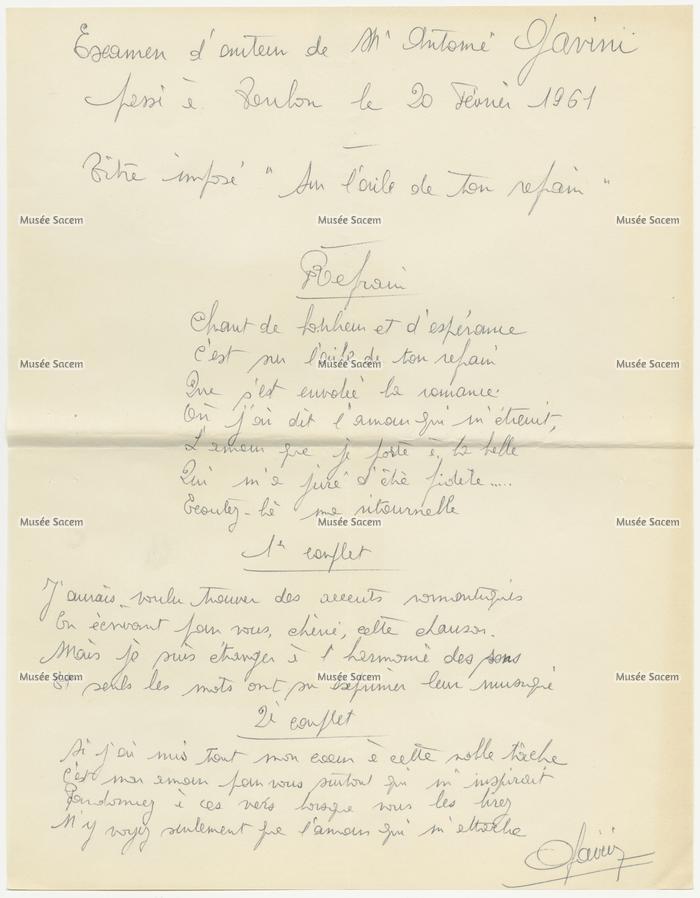 Examen d'auteur de Mr Antoine Gavini
passé à Toulon le 20 Février 1961
Titre imposé "Sur l'aile de ton refrain"
Musée Sacem Musée Sacem Musée Sacem
Refrain
Chant de bonheur et d'espérance
C'est sur l'aile de ton refrain
Musée Sacem Musée Sacem Musée Sacem
Que s'est envolée la romance
Où j'ai dit l'amour qui m'étreint,
L'amour que je porte à la belle
Qui m'a juré d'être fidèle.....
Ecoutez-là ma ritournelle
Musée Sacem Musée Sacem Musée Sacem
1er couplet
J'aurais voulu trouver des accents romantiques
En écrivant pour vous, chérie, cette chanson.
Mais je suis étranger à l'harmonie des sons
Et seuls les mots ont su exprimer leur musique
Musée Sacem Musée Sacem Musée Sacem
2è couplet
Si j'ai mis tout mon coeur à cette noble tâche
C'est mon amour pour vous surtout qui m'inspirait
Pardonnez à ces vers lorsque vous les lirez
N'y voyez seulement que l'amour qui m'attache
Gavini